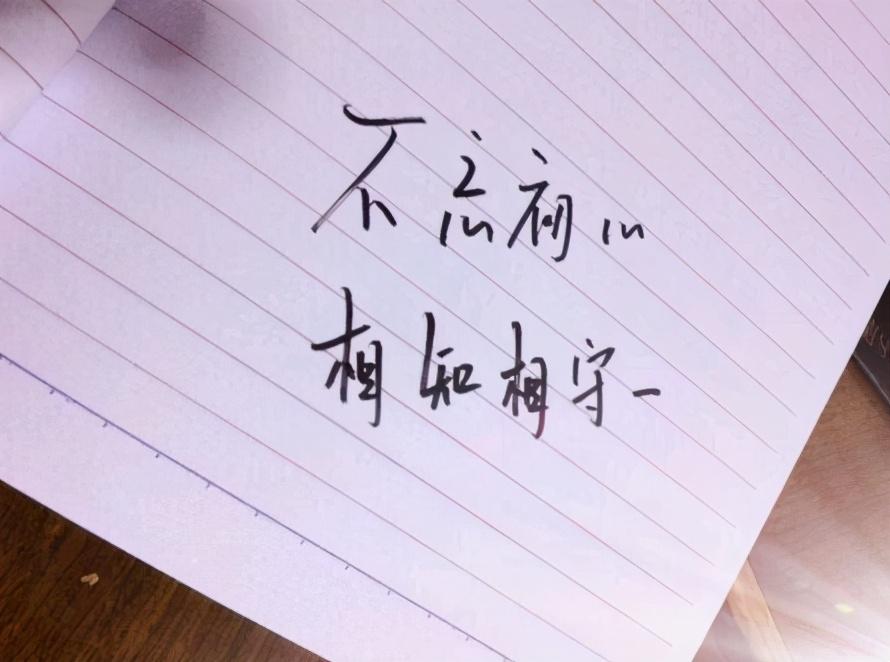 不忘初心
相知相守一